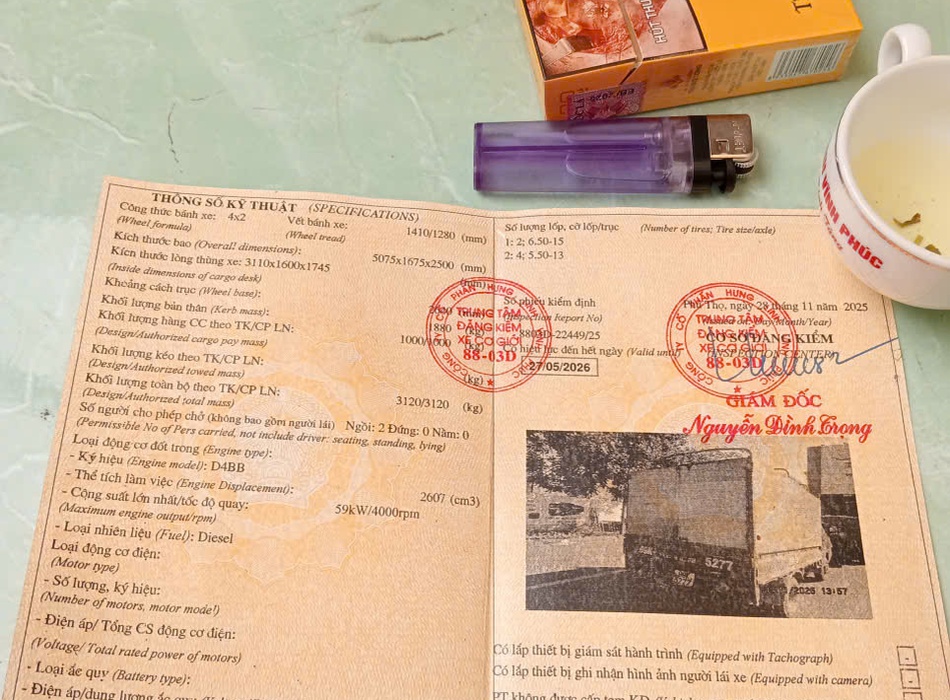 HÚT THU
VĨNH PHÚC
THÔNG SỐ KỸ THUẬT (SPECIFICATIONS)
Công thức bánh xe: 4x2 Vết bánh xe: 1410/1280 (mm)
(Wheel formula) (Wheel tread)
Kích thước bao (Overall dimensions): 5075x1675x2500 (mm)
Kích thước lòng thùng xe: 3110x1600x1745 (mm)
(Inside dimensions of cargo desk)
Khoảng cách trục (Wheel base):
Khối lượng bản thân (Kerb mass): 1880 (kg)
Khối lượng hàng CC theo TK/CP LN: 1000/1000 (kg)
(Design/Authorized cargo pay mass)
Khối lượng kéo theo TK/CP LN: (kg)
(Design/Authorized towed mass)
Khối lượng toàn bộ theo TK/CP LN: 3120/3120 (kg)
(Design/Authorized total mass)
Số người cho phép chở (không bao gồm người lái) Ngồi: 2 Đứng: 0 Nằm: 0
(Permissible No of Pers carried, not include driver: seating, standing, lying)
Loại động cơ đốt trong (Engine type):
- Ký hiệu (Engine model): D4BB
- Thể tích làm việc (Engine Displacement): 2607 (cm3)
- Công suất lớn nhất/tốc độ quay: 59kW/4000rpm
(Maximum engine output/rpm)
- Loại nhiên liệu (Fuel): Diesel
Loại động cơ điện:
(Motor type)
- Số lượng, ký hiệu:
(Number of motors, motor model)
- Điện áp/ Tổng CS động cơ điện:
(Voltage/ Total rated power of motors)
- Loại ắc quy (Battery type):
- Điện áp/dung lượng ắc quy
Số lượng lốp, cỡ lốp/trục (Number of tires; Tire size/axle)
1: 2; 6.50-15
2: 4; 5.50-13
Số phiếu kiểm định
(Inspection Report No)
8803D-22449/25
Có hiệu lực đến hết ngày (Valid until)
27/05/2026
TRUNG TÂM
ĐĂNG KIỂM
XE CƠ GIỚI
88-03D
Phú Thọ, ngày 28 tháng 11 năm 2025
CƠ SỞ ĐĂNG KIỂM
INSPECTION CENTER
TRUNG TÂM
ĐĂNG KIỂM
XE CƠ GIỚI
88-03D
GIÁM ĐỐC
Nguyễn Đình Trọng
5277
2025 13:57
Có lắp thiết bị giám sát hành trình (Equipped with Tachograph)
Có lắp thiết bị ghi nhận hình ảnh người lái xe (Equipped with camera)